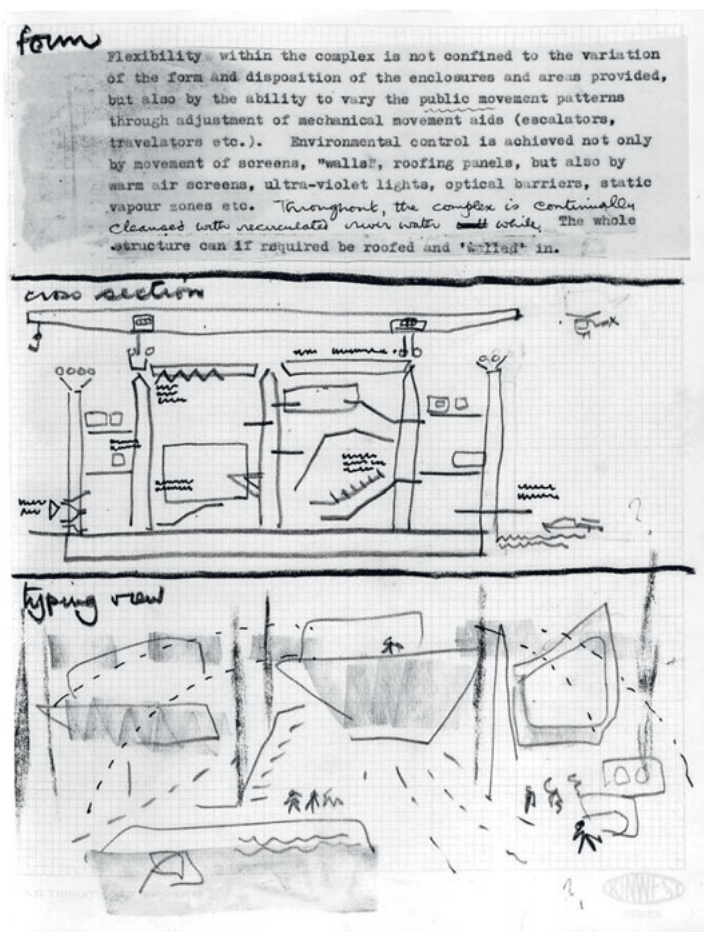 form
Flexibility within the complex is not confined to the variation
of the form and disposition of the enclosures and areas provided,
but also by the ability to vary the public movement patterns
through adjustment of mechanical movement aids (escalators,
travelators etc.). Environmental control is achieved not only
by movement of screens, "walls", roofing panels, but also by
warm air screens, ultra-violet lights, optical barriers, static
vapour zones etc. Throughout, the complex is continually
cleansed with recirculated river water while. The whole
structure can if required be roofed and 'walled' in.
cross section
typing view
?
?